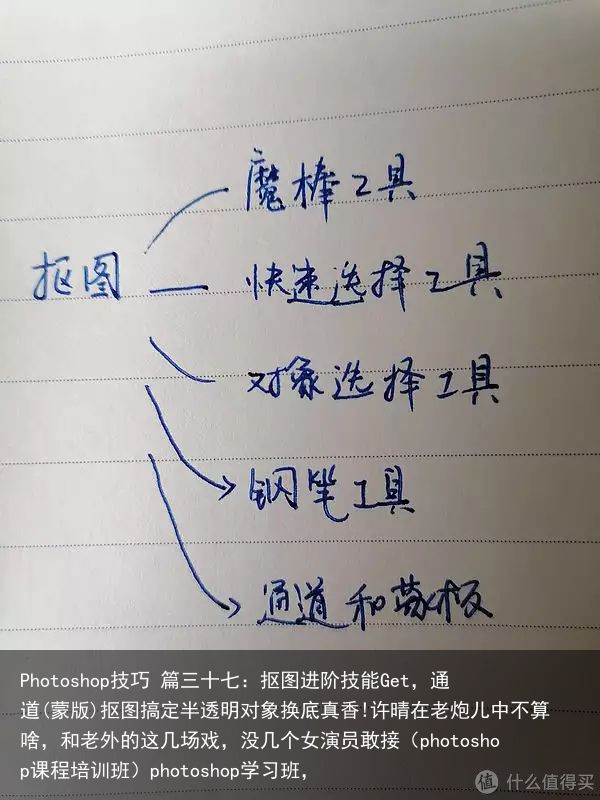 魔棒工具
抠图
快速选择工具
对象选择工具
钢笔工具
通道和蒙板
Photoshop技巧 篇三十七：抠图进阶技能Get，通
道(蒙版)抠图搞定半透明对象换底真香!许晴在老炮儿中不算
啥，和老外的这几场戏，没几个女演员敢接（photosho
p课程培训班）photoshop学习班，
值 什么值得买